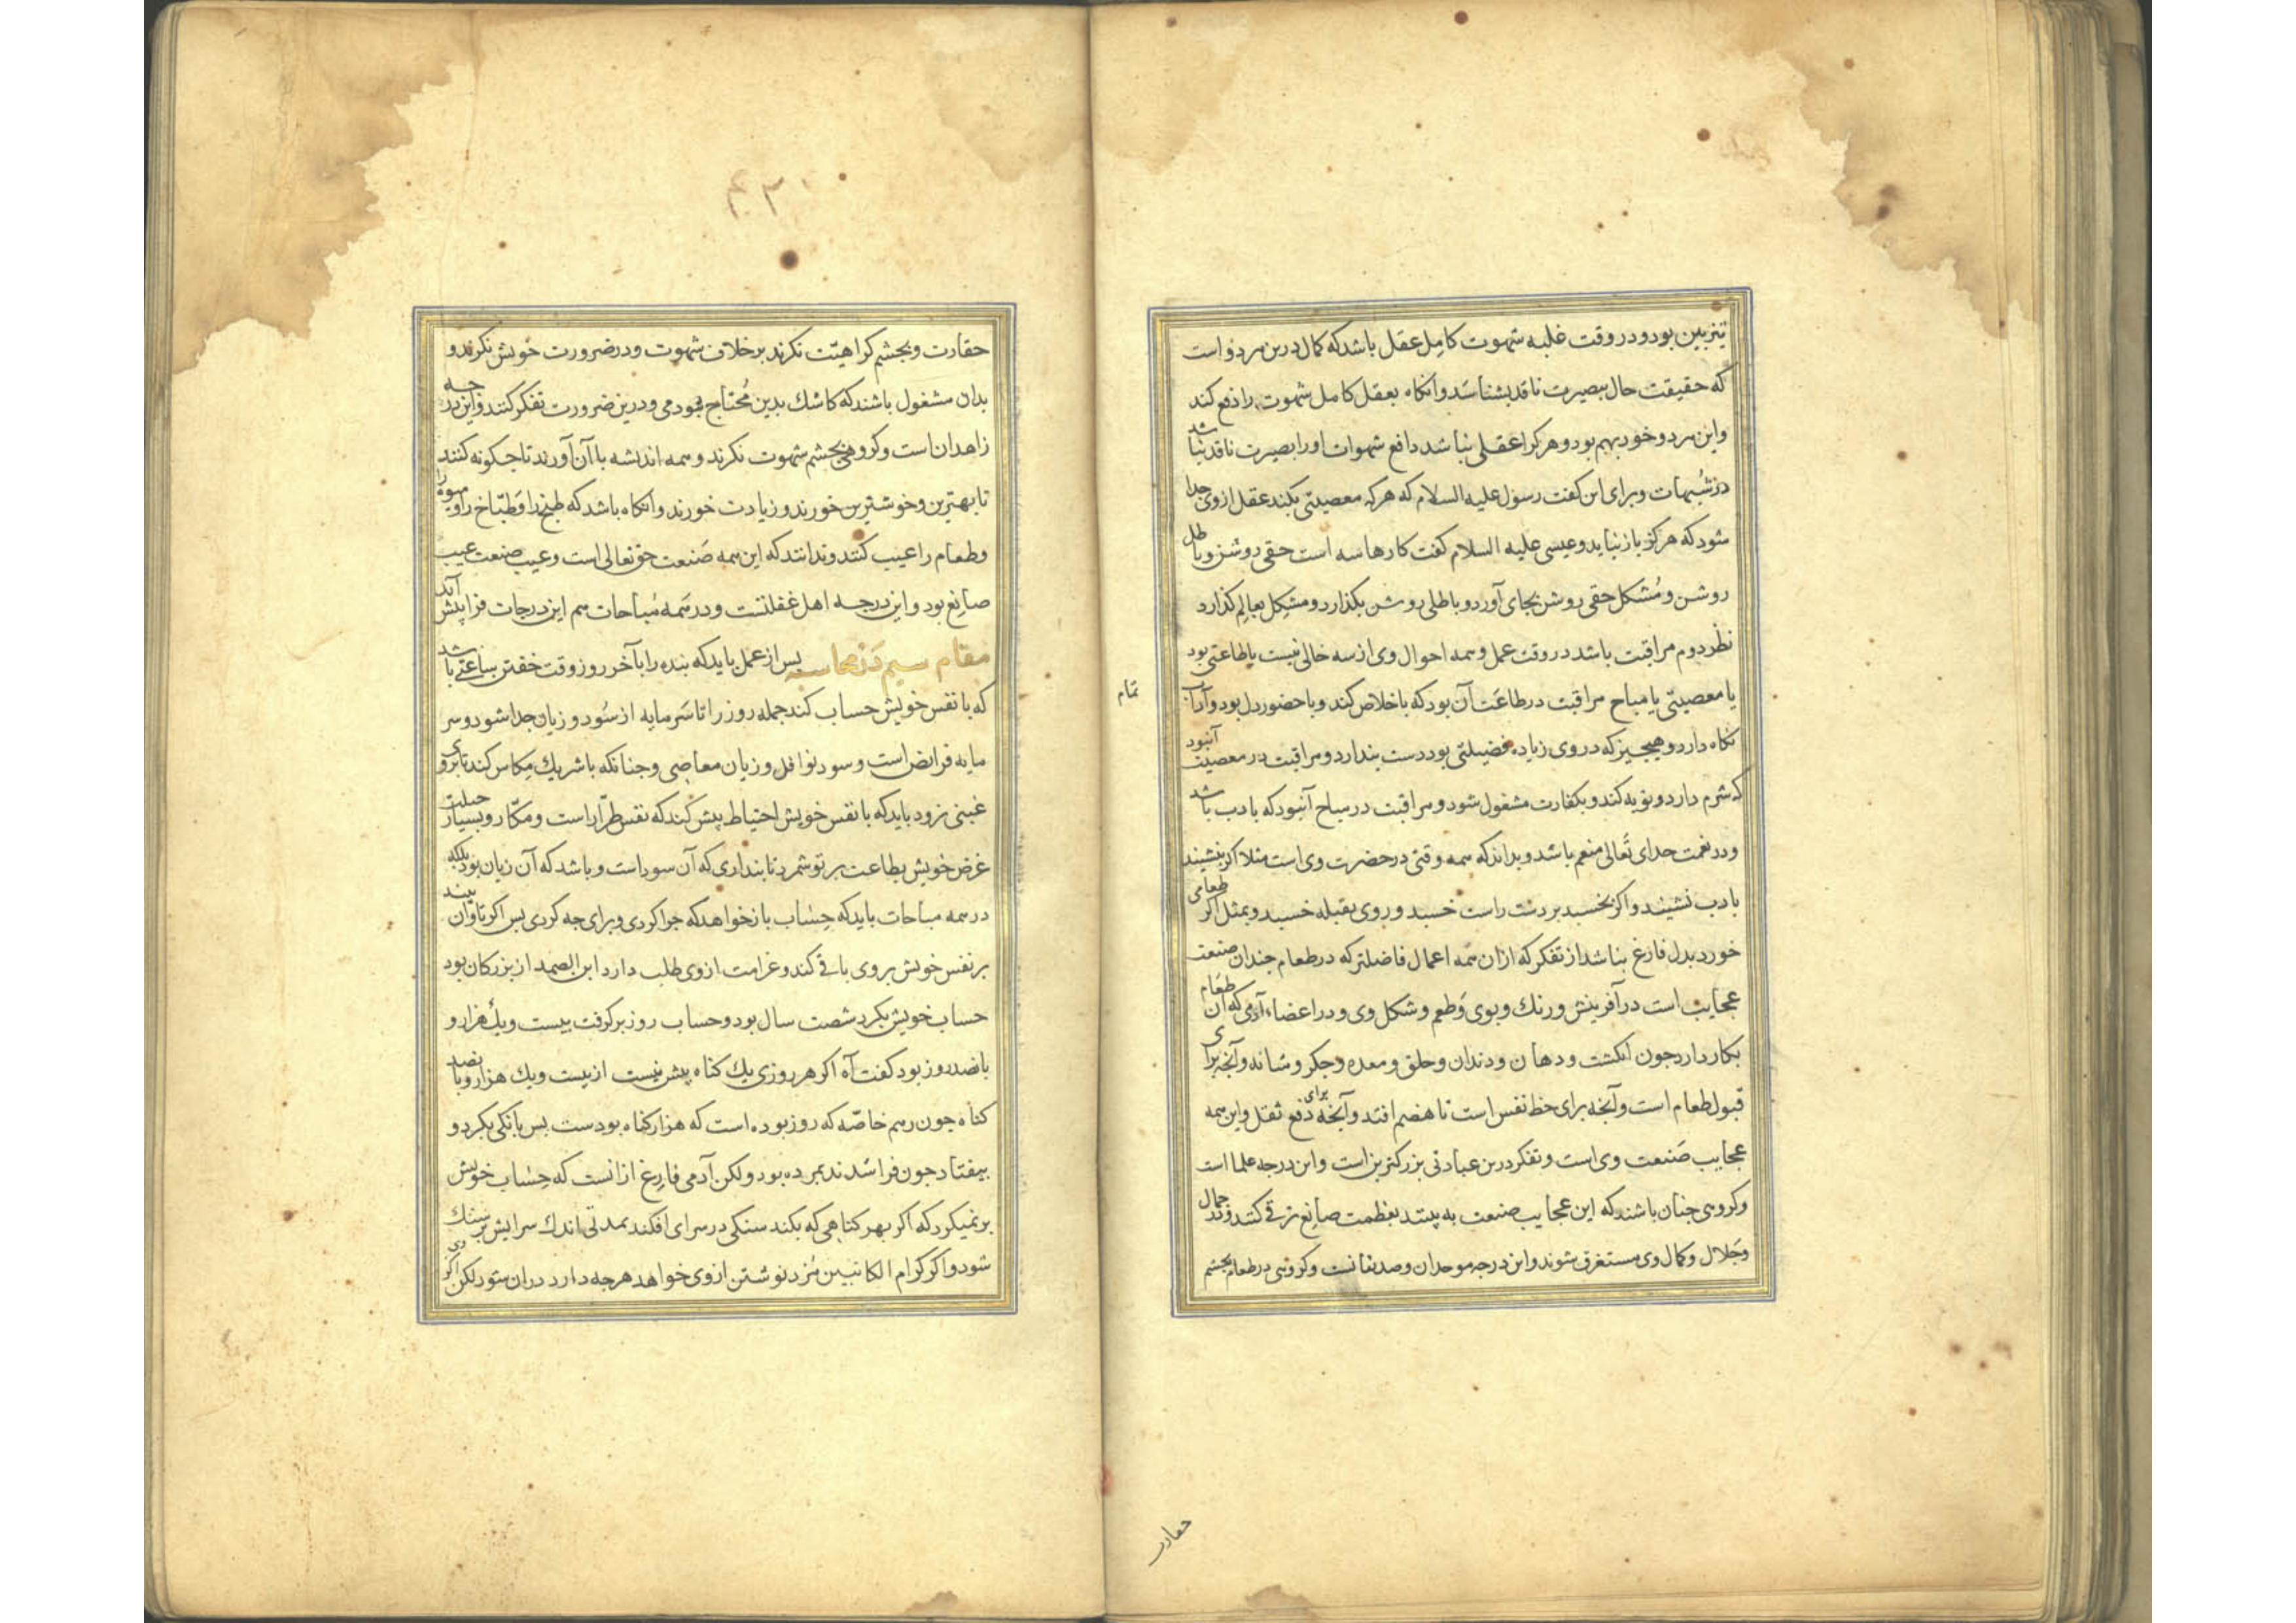 تیزبین بود و در وقت غلبه شهوت کامل عقل باشد که کمال درین هر دو است
که حقیقت حال ببصیرت ناقد بشناسد و انکاه بعقل کامل شهوت را دفع کند
و این هر دو خود بهم بود و هر کرا عقلی نباشد دافع شهوات او را بصیرت ناقد نباشد
در شبهات و برای این کفت رسول علیه السلام که هر که معصیتی بکند عقل از وی جدا
شود که هرکز باز نیاید و عیسی علیه السلام کفت کارها سه است حقی روشن و باطل
روشن و مشکل حقی روشن بجای آورد و باطلی روشن بکذارد و مشکل بعالم کذارد
نظر دوم مراقبت باشد در وقت عمل و همه احوال وی از سه خالی نیست یا طاعتی بود
یا معصیتی یا مباح مراقبت در طاعت آن بود که با خلاص کند و با حضور دل بود و آداب
تمام
نکاه دارد و هیچیز که در وی زیاده فضیلتی بود دست بندارد و مراقبت در معصیت آنبود
که شرم دارد و توبه کند و بکفارت مشغول شود و مراقبت در مباح آنبود که بادب باشد
و در نعمت خدای تعالی منعم باشد و بداند که همه وقتی در حضرت وی است مثلا اکر بنشیند
بادب نشیند و اکر بخسبد بر دست راست خسبد و روی بقبله خسبد و بمثل اکر طعامی
خورد بدل فارغ نباشد از تفکر که از ان همه اعمال فاضلتر که در طعام جندان صنعت
عجایب است در آفرینش و رنک و بوی و طعم و شکل وی و در اعضاء آدمی که آن طعام
بکار دارد جون انکشت و دهان و دندان و حلق و معده و جکر و مثانه و آنجه برای
قبول طعام است و آنجه برای حظ نفس است تا هضم افتد و آنجه برای دفع ثقل و این همه
عجایب صنعت وی است و تفکر درین عبادتی بزرکترین است و این درجه علما است
و کروهی جنان باشند که این عجایب صنعت به بینند بعظمت صانع ترقی کنند و در جمال
و جلال و کمال وی مستغرق شوند و این درجه موحدان و صدیقانست و کروهی در طعام بجشم
حقارت
حقارت و بجشم کراهیت نکرند بر خلاف شهوت و در ضرورت خویش نکرند و
بدان مشغول باشند که کاشک بدین محتاج نبودمی و درین ضرورت تفکر کنند و این درجه
زاهدان است و کروهی بجشم شهوت نکرند و همه اندیشه با آن آورند تا جکونه کنند
تا بهترین و خوشترین خورند و زیادت خورند و انکاه باشد که طبخ را و طباخ را و میوه را
و طعام را عیب کنند و ندانند که این همه صنعت حق تعالی است و عیب صنعت عیب
صانع بود و این درجه اهل غفلتست و در همه مباحات هم این درجات فرا پیش آید
مقام سیم در محاسبه پس از عمل باید که بنده را بآخر روز وقت خفتن ساعتی باشد
که با نفس خویش حساب کند جمله روز را تا سرمایه از سود و زیان جدا شود و سر
مایه فرایض است و سود نوافل و زیان معاصی و جنانکه با شریک مکاس کند تا بر وی
غبنی نرود باید که با نفس خویش احتیاط بیش کند که نفس طرار است و مکار و بسیار حیلت
غرض خویش بطاعت بر تو شمرد تا بنداری که آن سود است و باشد که آن زیان بود بلکه
در همه مباحات باید که حساب باز خواهد که جرا کردی و برای جه کردی بس اکر تاوان بیند
بر نفس خویش بر وی باقی کند و غرامت از وی طلب دارد ابن الصمد از بزرکان بود
حساب خویش بکرد شصت سال بود و حساب روز برکرفت بیست و یک هزار و
بانصد روز بود کفت آه اکر هر روزی یک کناه بیش نیست از بیست و یک هزار و بانصد
کناه جون رهم خاصه که روز بوده است که هزار کناه بودست بس بانکی بکرد و
بیفتاد جون فرا شدند بمرده بود ولکن آدمی فارغ ازانست که حساب خویش
برنمیکرد که اکر بهر کناهی که بکند سنکی در سرای افکند بمدتی اندک سرایش بر سنک
شود و اکر کرام الکاتبین مزد نوشتن از وی خواهد هرجه دارد دران شود لکن اکر وی